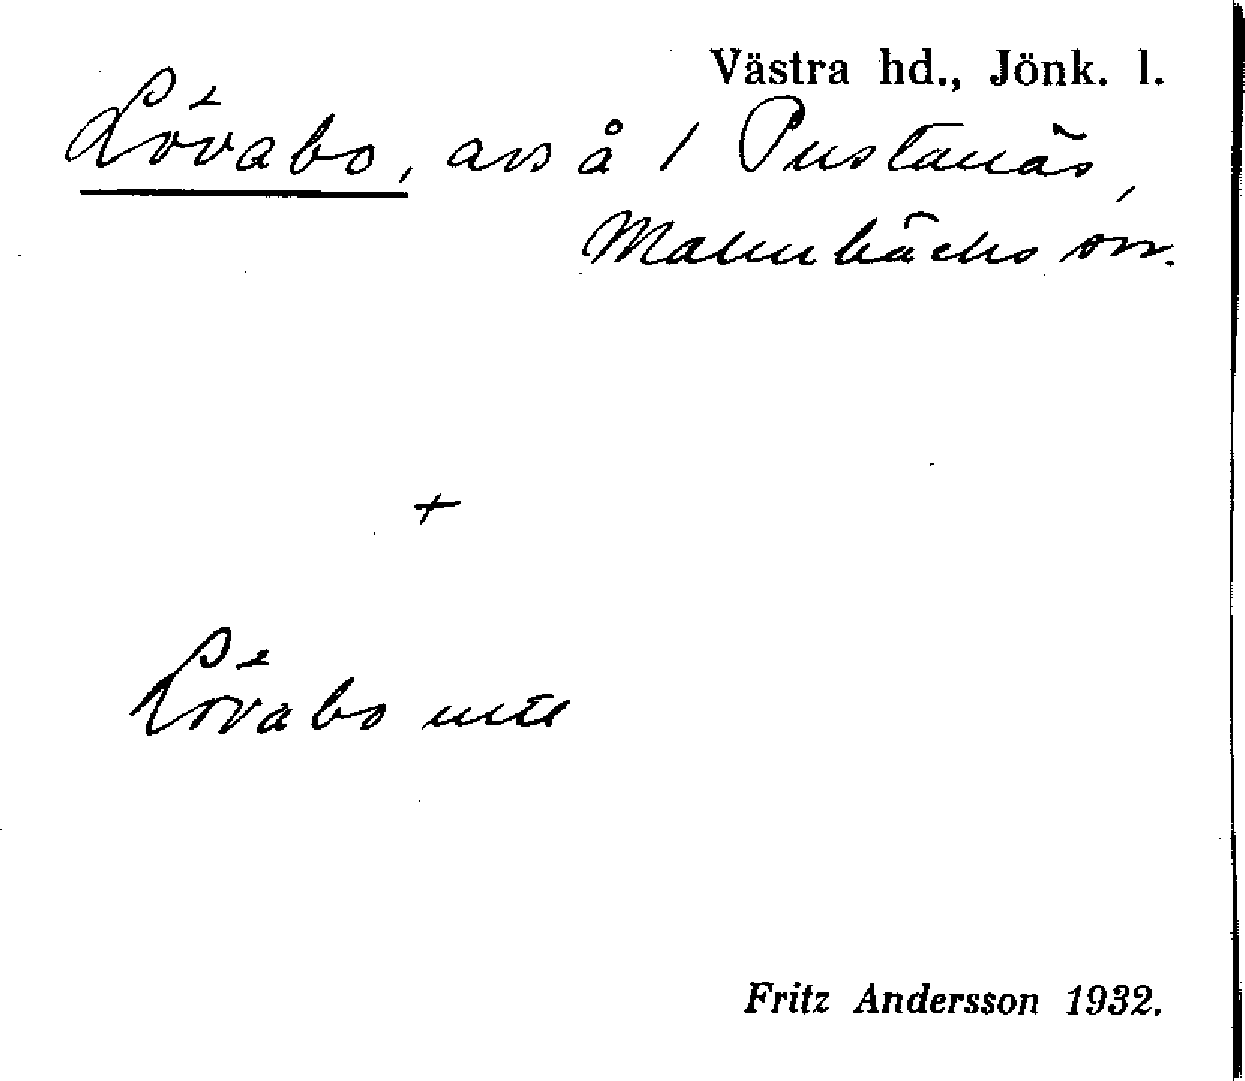 Västra hd., Jönk. l.
Lövabo, avs å 1 Pustanäs,
Malmbäcks sn.
+
Lövabo
Fritz Andersson 1932.